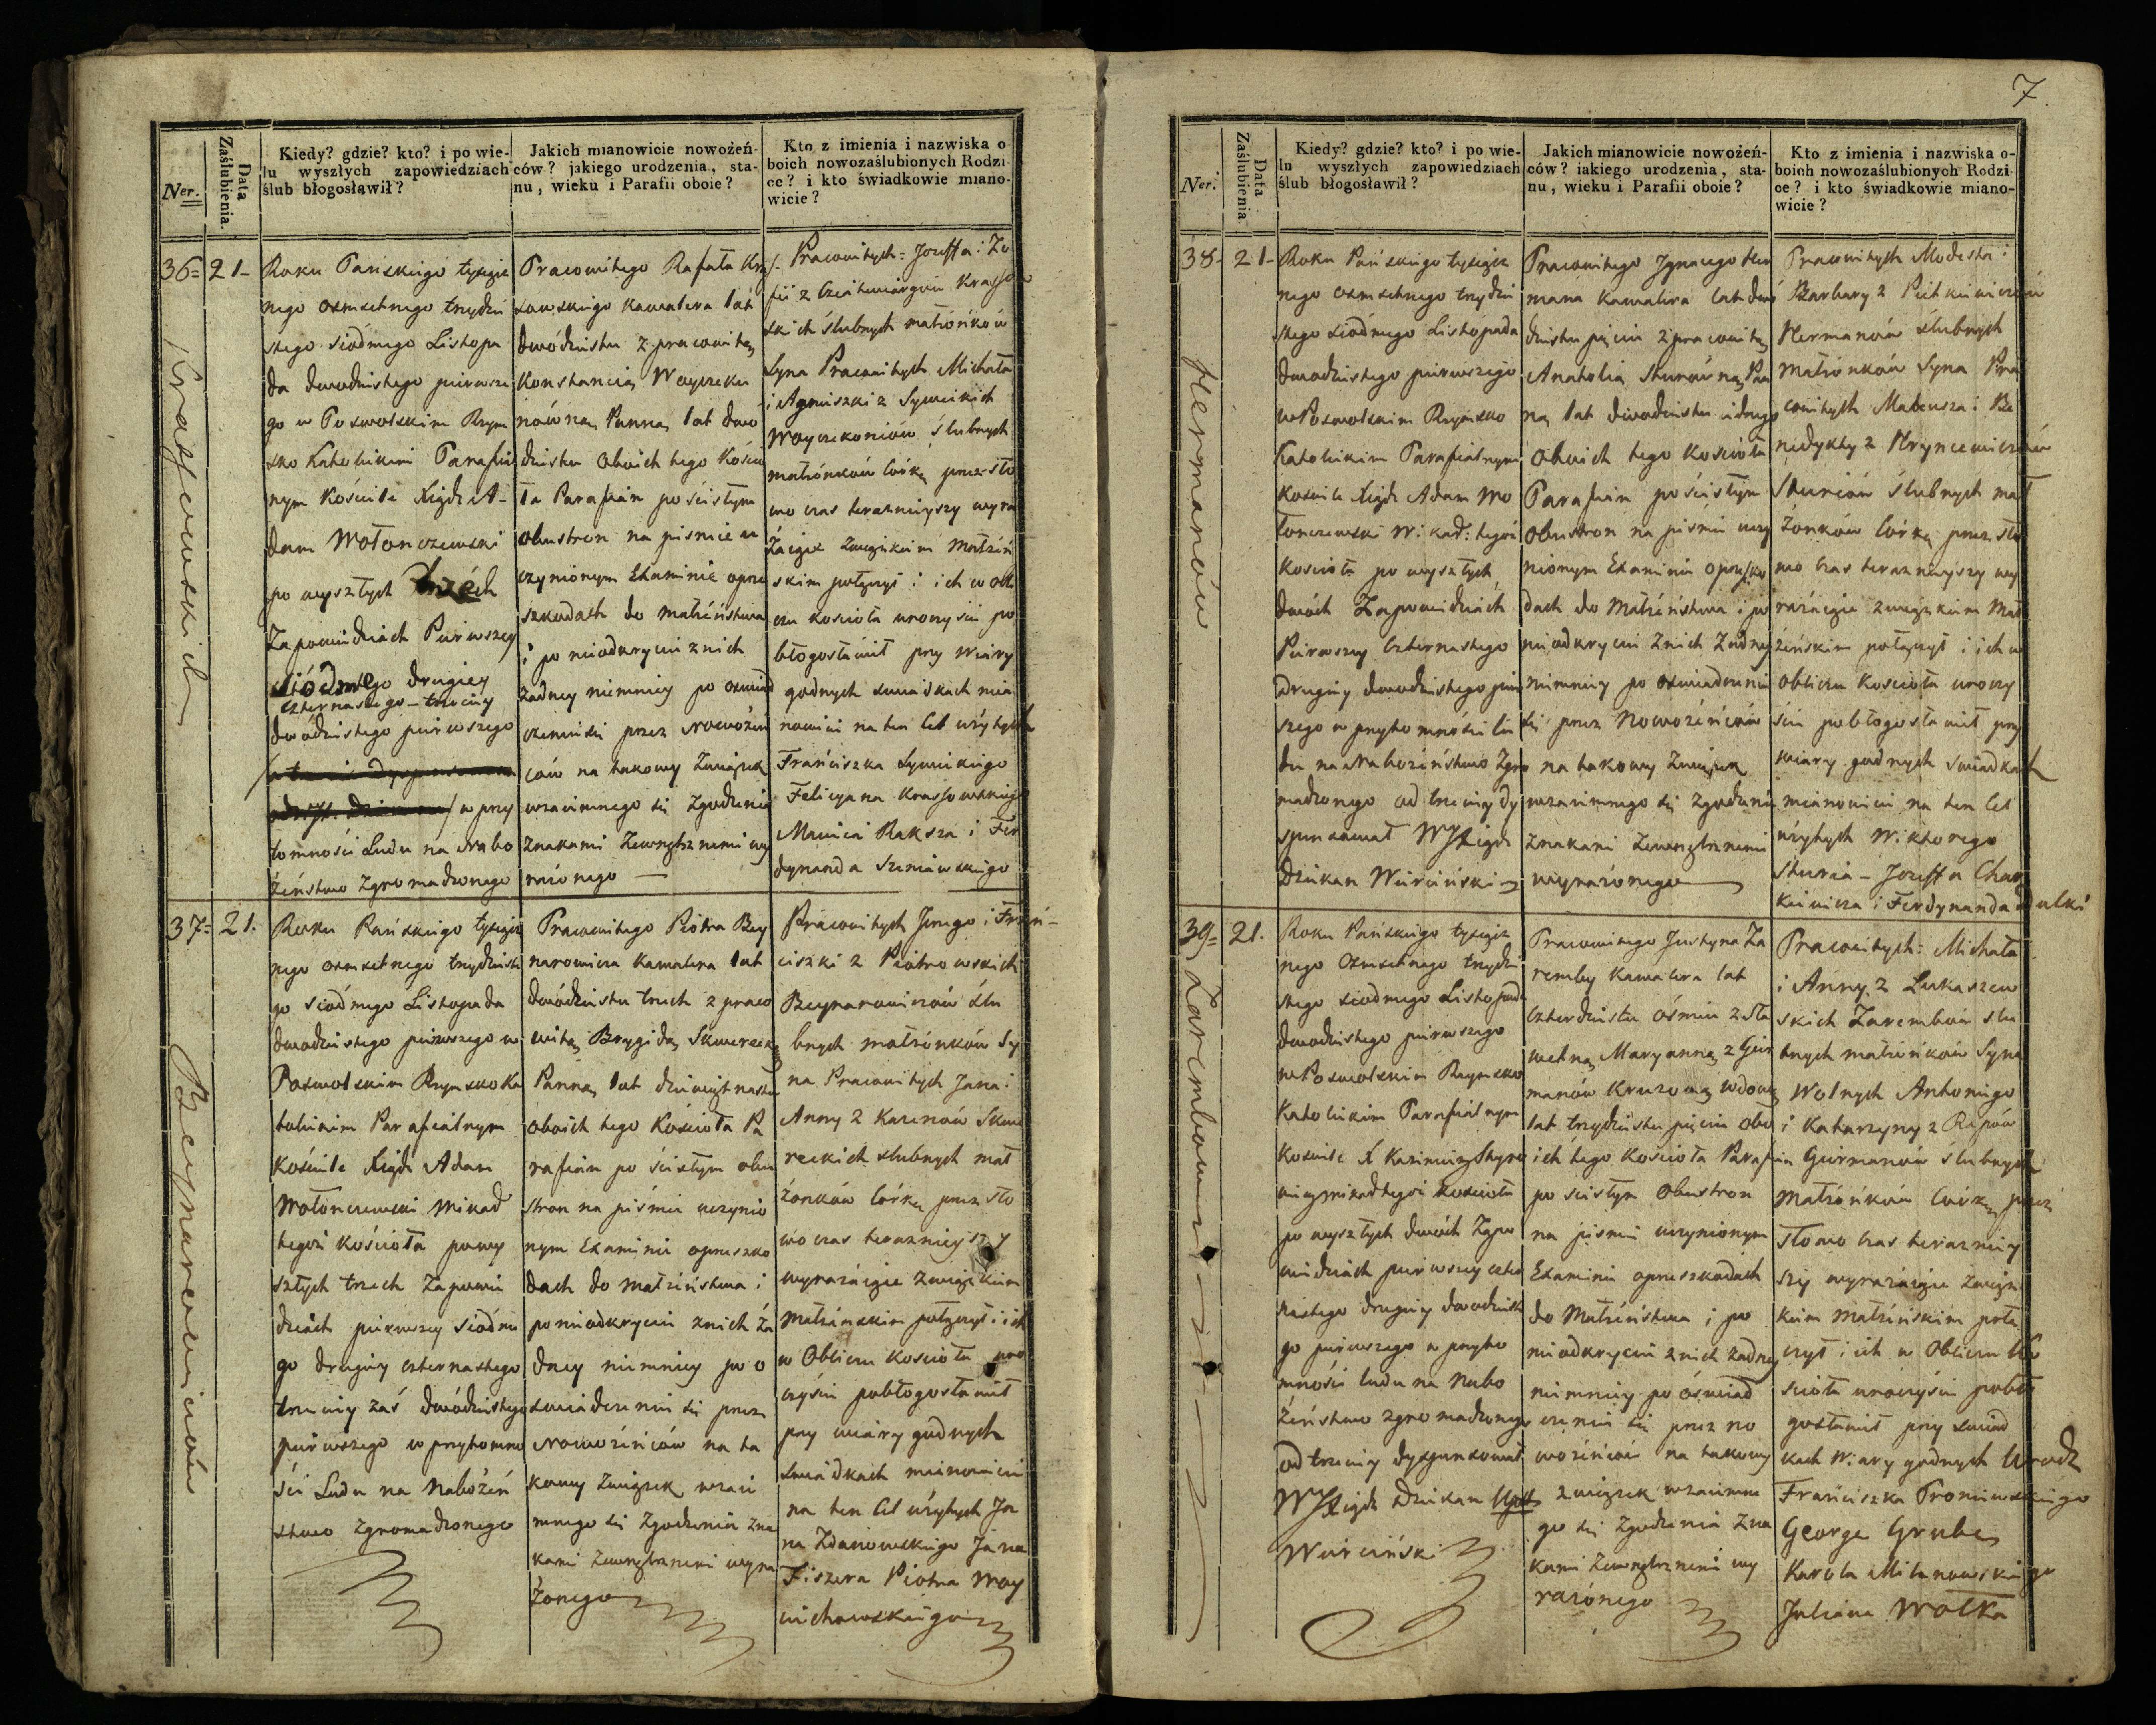 Ner.
Data Zaślubienia.
Kiedy? gdzie? kto? i po wie-
lu wyszłych zapowiedziach
ślub błogosławił?
Jakich mianowicie nowożeń-
ców? jakiego urodzenia, sta-
nu, wieku i Parafii oboie?
Kto z imienia i nazwiska o
boich nowozaślubionych Rodzi
ce? i kto świadkowie miano-
wicie?
36=
21-
Krassowskich
Roku Pańskiego tysiącz
nego osmsetnego trzydzie
stego siódmego Listopa
da dwudziestego pierwsze
go w Poswolskim Rzym
sko Katolickim Parafial
nym Kościele Xiądz A-
dam Wołonczewski
po wyszłych trzéch
Zapowiedziach Pierwszey
siódmego drugiey
czternastego - trzeciey
dwódziestego pierwszego
w przy
tomności Ludu na Nabo
żeństwo Zgromadzonego
Pracowitego Rafała Kras
sowskiego kawalera lat
dwódziestu z pracowitą
Konstancią Woyczeku
nówną Panną lat dwo
dziestu oboich tego Kościo
ła Parafian po ścisłym
obustron na pismie u
czynionym Examinie o prze
szkodach do małżeństwa
i po nieodkryciu z nich
żadney niemniey po oswiad
czeniu się przez Nowożeń
ców na takowy Związek
wzaiemnego się Zgodzenia
znakami Zewnętrznemi wy
rażonego
Pracowitych = Józeffa i Zo
fii z Krasso
skich ślubnych małżonków
Syna Pracowitych Michała
i Agnieszki z Symickich
Woyczekoniów ślubnych
małżonków Córkę przez sło
wo czas teraznieyszy wyra
żaiące Związkiem Małżeń
skim połączył i ich w obli
czu kościoła uroczyście po
błogosławił przy wiary
godnych swiadkach mia
nowicie na ten Cel użytych
Franciszka Symickiego
Felicyana Krassowskiego
Macieia Raksza i Fer
dynanda Szeniawskiego
37=
21.
Beynarowiczów
Roku Pańskiego tysiącz
nego osmsetnego trzydzieste
go siódmego Listopada
dwudziestego pierwszego w
Poswolskim Rzymsko Ka
tolickim Parafialnym
Kościele Xiądz Adam
Wołonczewski Wikad
tegoż Kościoła po wy
szłych trzech Zapowie
dziach pierwszey siódme
go drugiey czternastego
trzeciey zaś dwódziestego
pierwszego w przytomno
ści Ludu na Nabożeń
stwo Zgromadzonego
Pracowitego Piotra Bey
narowicza Kawalera lat
dwódziestu trzech z praco
witą Brygidą Skwerecką
Panną lat dziewiętnastu
oboich tego Kościoła Pa
rafian po ścisłym obu
stron na piśmie uczynio
nym Examinie o przeszko
dach do małżeństwa i
po nieodkryciu z nich ża
dney niemniey po o
swiadczeniu się przez
Nowożeńców na ta
kowy Związek wzaie
mnego się Zgodzenia Zna
kami Zewnętrznemi wyra
żonego
Pracowitych Jerzego i Fran-
ciszki z Piotrowskich
Beynarowiczów ślu
bnych małżonków Sy
na Pracowitych Jana i
Anny z Karenów Skwe
reckich slubnych mał
żonków Córkę przez sło
wo czas teraznieyszy
wyrażaiące Związkiem
Małżenskim połączył i ich
w Obliczu Kościoła uro
czyście pobłogosławił
przy wiary godnych
Swiadkach mianowicie
na ten Cel użytych Ja
na Zdanowskiego Jana
Fiszera Piotra Woy
ciechowskiego
7.
Ner.
Data Zaślubienia
Kiedy? gdzie? kto? i po wie-
lu wyszłych zapowiedziach
ślub błogosławił?
Jakich mianowicie nowożeń-
ców? iakiego urodzenia, sta-
nu, wieku i Parafii oboie?
Kto z imienia i nazwiska o-
boich nowozaślubionych Rodzi-
ce? i kto świadkowie miano-
wicie?
38-
21-
Hermanów
Roku Pańskiego tysiącz
nego osmsetnego trzydzie
stego siodmego Listopada
dwódziestego pierwszego
w Poswolskim Rzymsko
Katolickim Parafialnym
Kosciele Xiądz Adam Wo
łonczewski Wikad: tegoż
Kościoła po wyszłych
dwóch Zapowiedziach
Pierwszey Czternastego
drugiey dwodziestego pier
szego w przytomności lu
du na Nabożeństwo Zgro
madzonego od trzeciey dy
spensował WJXiądz
Dziekan Wierciński
Pracowitego Jgnacego Her
mana Kawalera lat dwó
dziestu pięciu z pracowitą
Anatolią Sturówną Pan
ną lat dwódziestu i dwóch
oboich tego Kościoła
Parafian po ścisłym
obustron na piśmie uczy
nionym Examinie o przeszko
dach do Małżeństwa i po
nieodkryciu Znich Żadney
niemniey po oswiadczeniu
się przez Nowożeńców
na takowy Związek
wzaiemnego się Zgodzenia
Znakami Zewnętrznemi
wyrażonego
Pracowitych Modesta i
Barbary z Pietkiewiczów
Hermanów slubnych
Małżonków Syna Pra
cowitych Mateusza i Be
nedykty z Hryncewiczów
Sturiów Ślubnych mał
żonków Córkę przez sło
wo Czas teraznieyszy wy
rażaiące związkiem Mał
żeńskim połączył i ich w
obliczu Kościoła uroczy
ście pobłogosławił przy
wiary godnych swiadkach
mianowicie na ten Cel
użytych Wiktorego
Sturia - Józeffa Char
kiewicza i Ferdynanda
39=
21.
Zarembowie
Roku Pańskiego tysiącz
nego Osmsetnego trzydzie
stego siodmego Listopada
dwodziestego pierwszego
w Poswolskim Rzymsko
Katolickim Parafialnym
Kościele X Kazimierz
Wikad tegoż Kościoła
po wyszłych dwóch Zapo
wiedziach pierwszey czter
nastego drugiey dwodzieste
go pierwszego w przyto
mności ludu na Nabo
żeństwo zgromadzonego
od trzeciey dyspensował
WJXiądz Dziekan
Wierciński
Pracowitego Justyna Za
remby Kawalera lat
czterdziestu ośmiu z Sla
wetną Maryanną z Gier
manów Kruzową wdową
lat trzydziestu pięciu obo
ich tego Kościoła Parafian
po scisłym Obustron
na pismie uczynionym
Examinie o przeszkodach
do Małżeństwa i po
nieodkryciu z nich żadney
niemniey po oświad
czeniu się przez no
wożeńców na takowy
związek wzaiemne
go się Zgodzenia Zna
kami Zewnętrznemi wy
rażonego
Pracowitych: Michała
i Anny z Łukaszew
skich Zarembów slu
bnych małżonków Syna
Wolnych Antoniego
i Katarzyny z Repów
Giermanów ślubnych
Małżonków Córkę przez
słowo Czas terazniey
szy wyrażaiące Związ
kiem Małżeńskim połą
czył i ich w Obliczu Ko
scioła uroczyście pobło
gosławił przy swiad
kach Wiary godnych Urodz
Franciszka Proniewskiego
George Grube
Karola Milanowskiego
Juliana Wołka